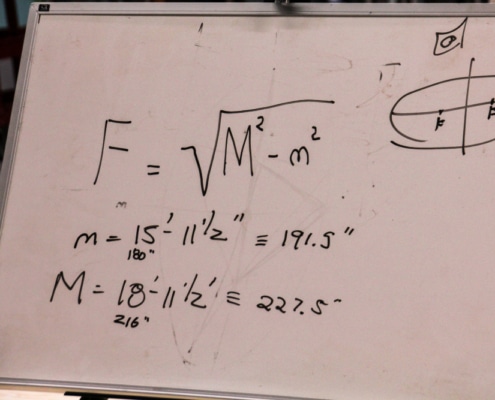 F = √M² - m²
m = 15' - 11 1/2" ≡ 191.5"
180"
M = 18' - 11 1/2' ≡ 227.5"
216"
F